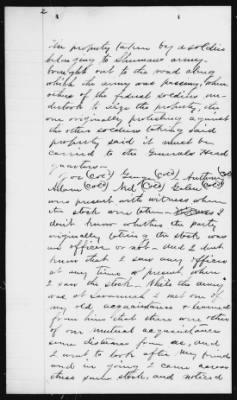 2
The property taken by a soldier
belonging to Shermans army
brought out to the road along
which the army was passing, when
others of the federal soldiers un-
dertook to seize the property, the
one originally protesting against
the other soldiers taking said
property said it must be
carried to the Generals Head
quarters.
Joe (cold) George (cold) Anthony
Adam (cold) Ned (cold) (cold)
was present with witness when
the stock was taken. I
don't know whether the party
originally taking the stock was
an officer or not. and I dont
know that I saw any officers
at any time or present when
I saw the stock. While the army
was at Savannah I met one of
my old acquaintances & learned
from him that there were others
of our mutual acquaintances
some distance from us, and
I went to look after my friend
and in going I came across
these same stock, and noticed